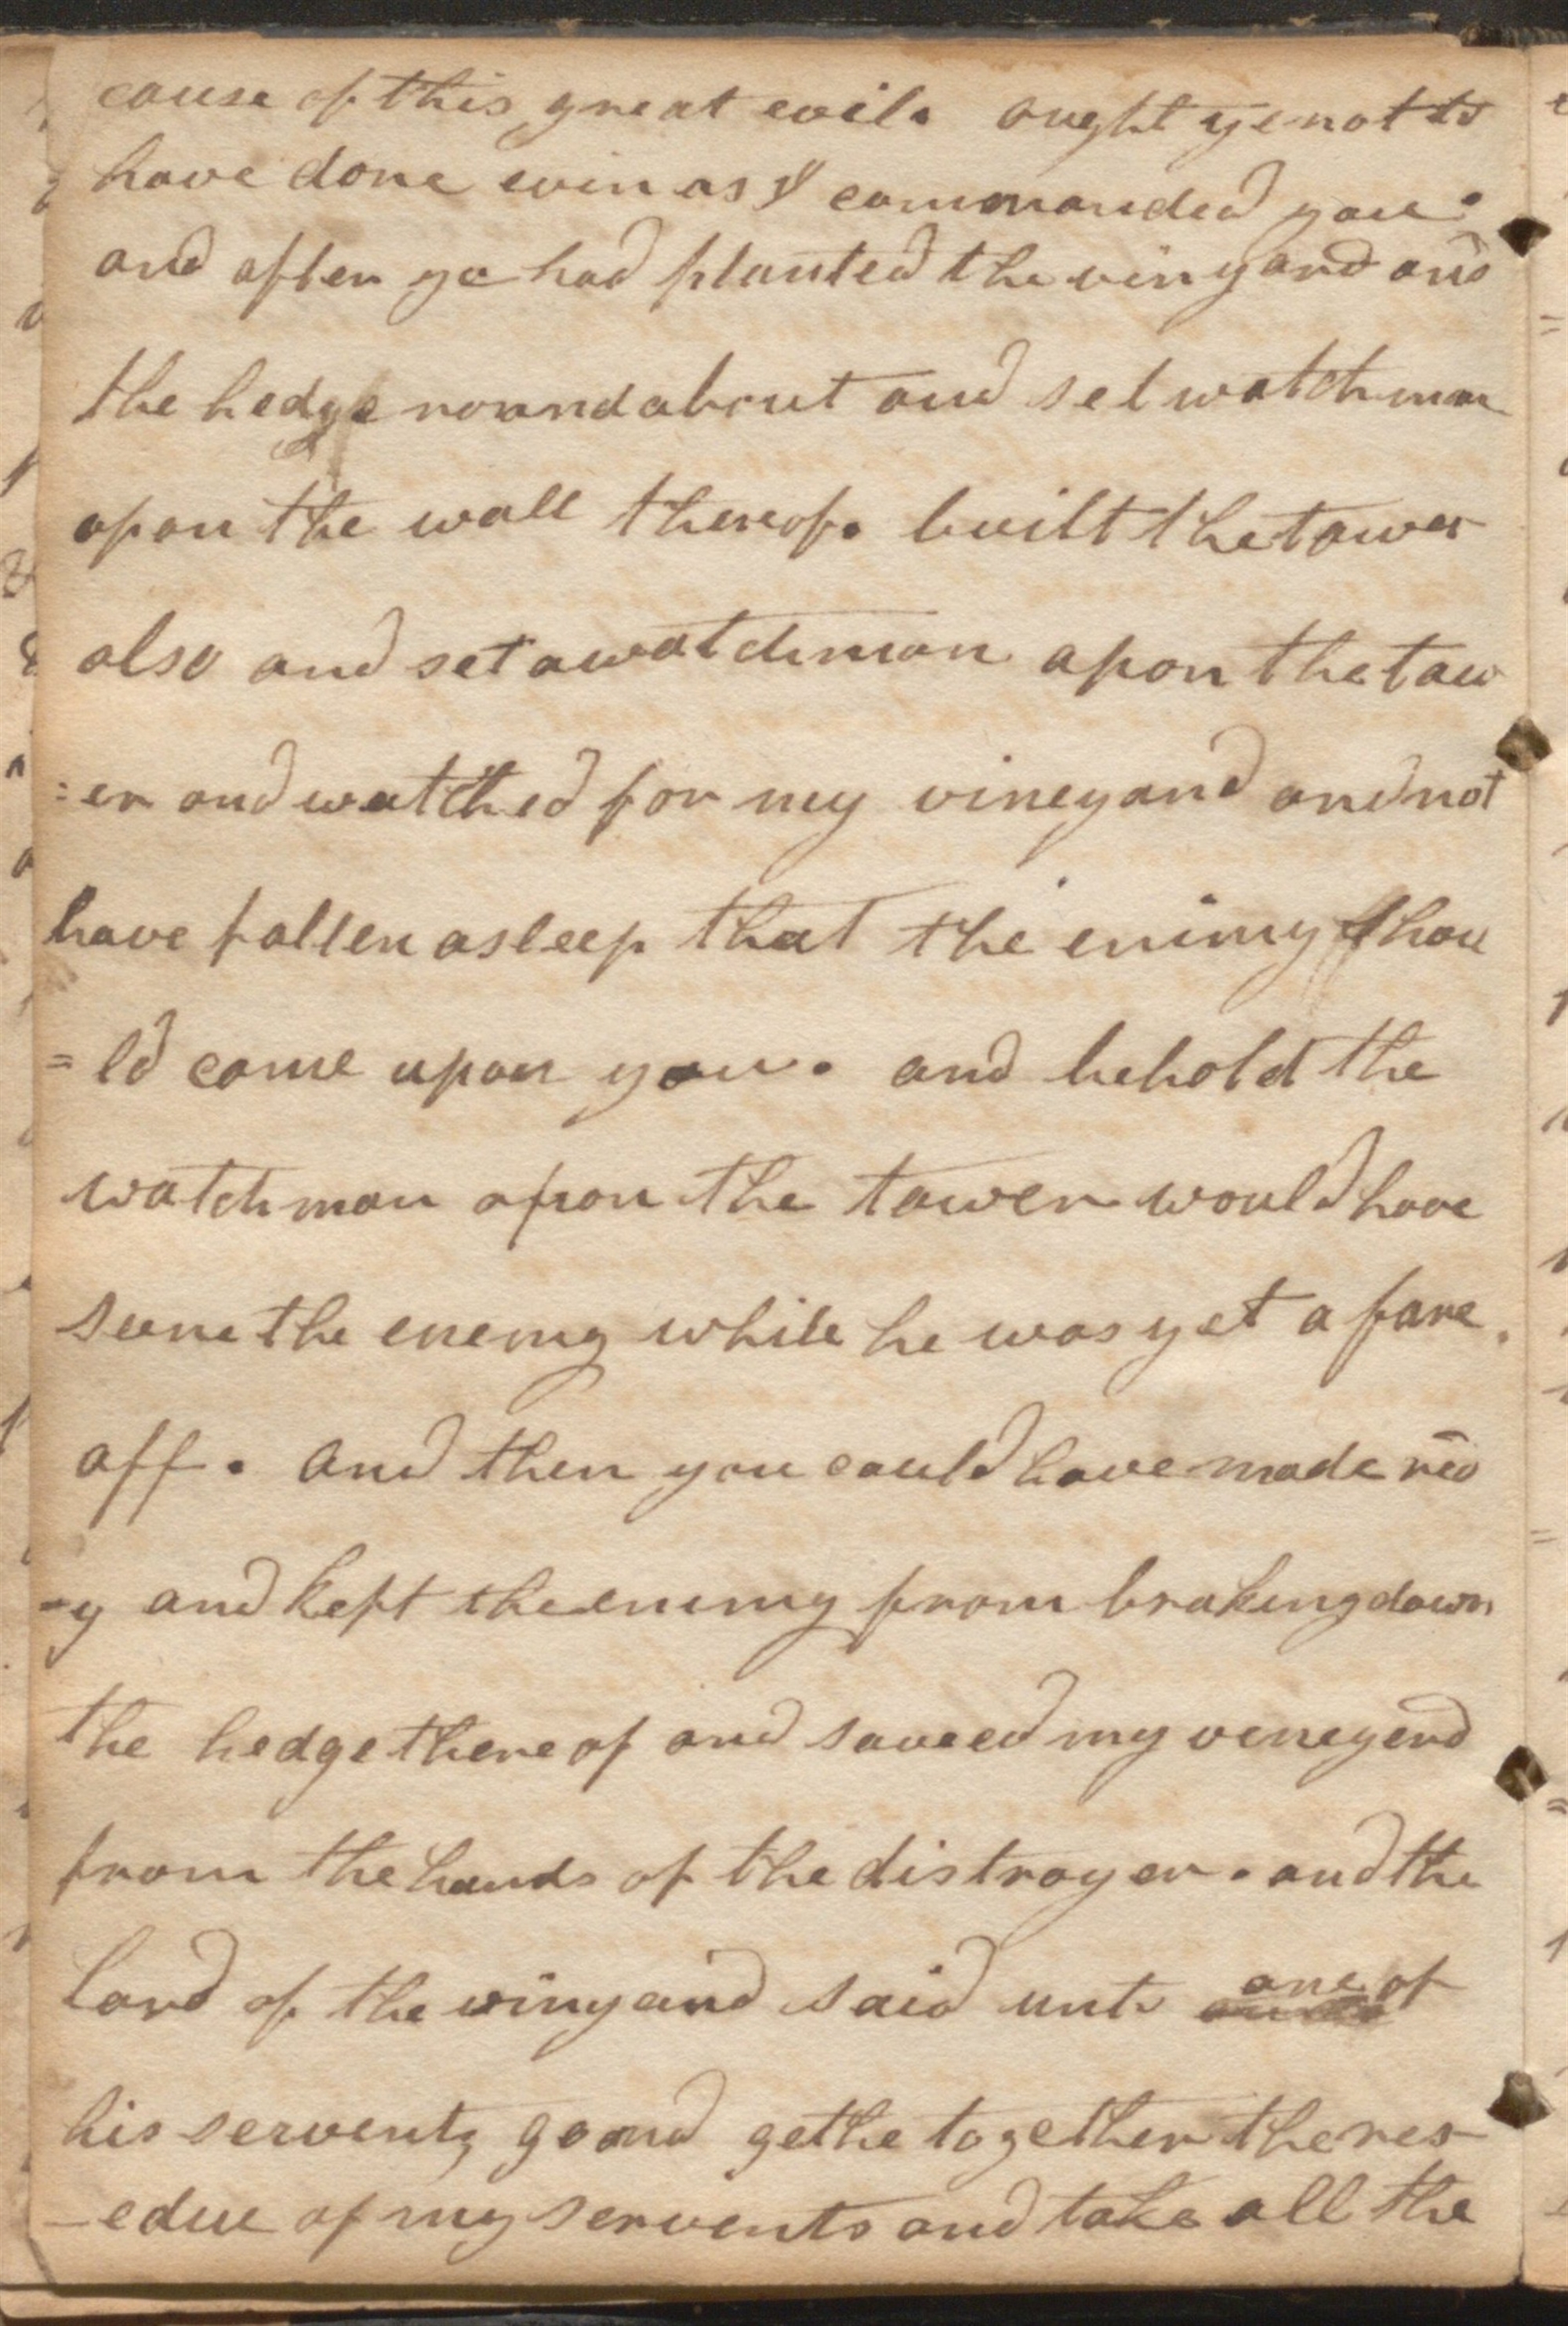 cause of this great evil. ought ye not to
have done evin as I commanded you.
and after ye had planted the vinyard and
the hedge round about and set watchman
apon the wall thereof. built the tower
also and set a watchman apon the tow
=er and watched for my vineyard and not
have fallen asleep that the enimy shou
=ld come upon you. and behold the
watchman apon the tower would have
seene the enemy while he was yet a fare.
off. and then you could have made red
-y and kept the enemy from braking down
the hedge there of and saveed my veneyerd
from the hands of the distroyer. and the
lord of the vinyard said unto one of
his servents go and gethe together the res-
-edue of my servents and take all the